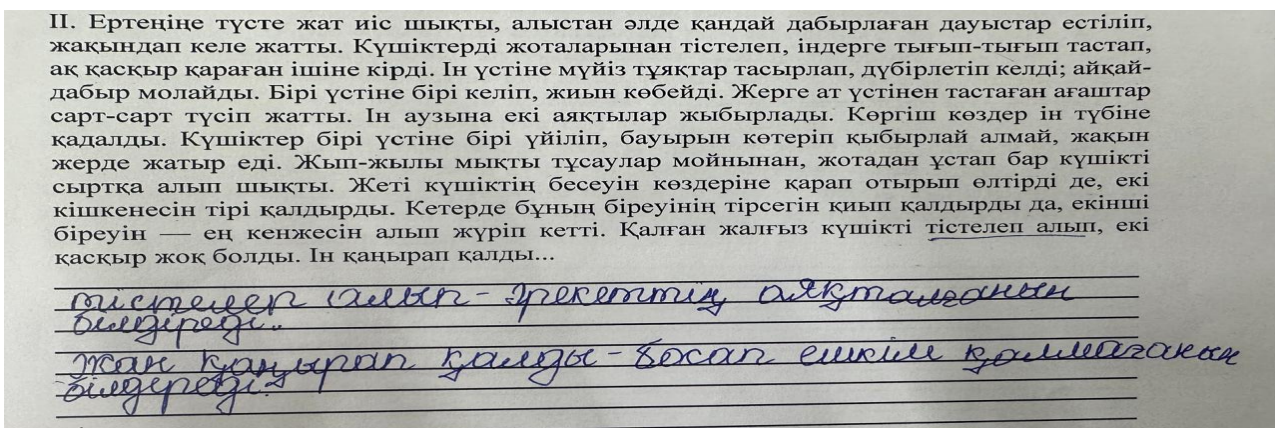 II. Ертеңіңе түсте жат иіс шықты, алыстан әлде қандай дабырлаған дауыстар естіліп,
жақындап келе жатты. Күшіктерді жоталарынан тістелеп, індерге тығып-тығып тастап,
ақ қасқыр қараған ішіне кірді. Ін үстіне мүйіз тұяқтар тасырлап, дүбірлетіп келді; айқай-
дабыр молайды. Бірі үстіне бірі келіп, жиын көбейді. Жерге ат үстінен тастаған ағаштар
сарт-сарт түсіп жатты. Ін аузына екі аяқтылар жыбырлады. Көргіш көздер ін түбіне
қадалды. Күшіктер бірі үстіне бірі үйіліп, бауырын көтеріп қыбырлай алмай, жақын
жерде жатыр еді. Жып-жылы мықты тұсаулар мойнынан, жотадан ұстап бар күшікті
сыртқа алып шықты. Жеті күшіктің бесеуін көздеріне қарап отырып өлтірді де, екі
кішкенесін тірі қалдырды. Кетерде бұның біреуінің тірсегін қиып қалдырды да, екінші
біреуін — ең кенжесін алып жүріп кетті. Қалған жалғыз күшікті тістелеп алып, екі
қасқыр жоқ болды. Ін қаңырап қалды...
тістелеп алып - әрекеттің аяқталғанын
білдіреді..
жан қаңырап қалды - босап ешкім қалмағанын
білдіреді.